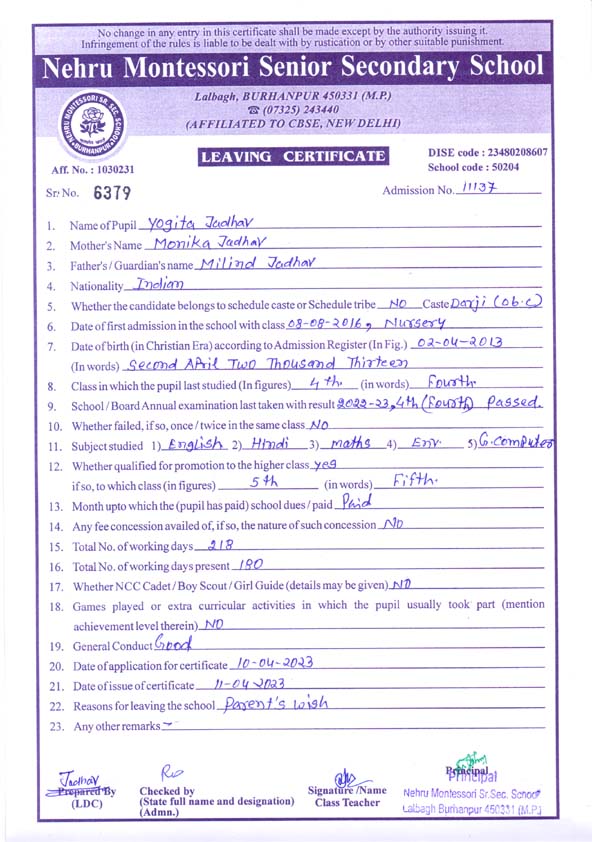 No change in any entry in this certificate shall be made except by the authority issuing it.
Infringement of the rules is liable to be dealt with by rustication or by other suitable punishment.
Nehru Montessori Senior Secondary School
Lalbagh, BURHANPUR 450331 (M.P.)
☎ (07325) 243440
(AFFILIATED TO CBSE, NEW DELHI)
NEHRU MONTESSORI SR. SEC. SCHOOL
BURHANPUR
LEAVING CERTIFICATE
DISE code : 23480208607
School code : 50204
Aff. No. : 1030231
Sr. No. 6379
Admission No. 11137
1. Name of Pupil Yogita Jadhav
2. Mother's Name Monika Jadhav
3. Father's / Guardian's name Milind Jadhav
4. Nationality Indian
5. Whether the candidate belongs to schedule caste or Schedule tribe NO Caste Darji (o b.c)
6. Date of first admission in the school with class 08-08-2016, Nursery
7. Date of birth (in Christian Era) according to Admission Register (In Fig.) 02-04-2013
(In words) Second April Two Thousand Thirteen
8. Class in which the pupil last studied (In figures) 4 th. (in words) Fourth.
9. School / Board Annual examination last taken with result 2022-23, 4th (Fourth) Passed.
10. Whether failed, if so, once / twice in the same class NO
11. Subject studied 1) English 2) Hindi 3) maths 4) Env. 5) G. Computer
12. Whether qualified for promotion to the higher class yes
if so, to which class (in figures) 5 th (in words) Fifth.
13. Month upto which the (pupil has paid) school dues / paid Paid
14. Any fee concession availed of, if so, the nature of such concession NO
15. Total No. of working days 218
16. Total No. of working days present 190
17. Whether NCC Cadet / Boy Scout / Girl Guide (details may be given) NO
18. Games played or extra curricular activities in which the pupil usually took part (mention
achievement level therein) NO
19. General Conduct Good
20. Date of application for certificate 10-04-2023
21. Date of issue of certificate 11-04-2023
22. Reasons for leaving the school Parent's wish
23. Any other remarks —
Jadhav
Prepared By
(LDC)
Checked by
(State full name and designation)
(Admn.)
Signature / Name
Class Teacher
Principal
Principal
Nehru Montessori Sr. Sec. School
Lalbagh Burhanpur 450331 (M.P.)